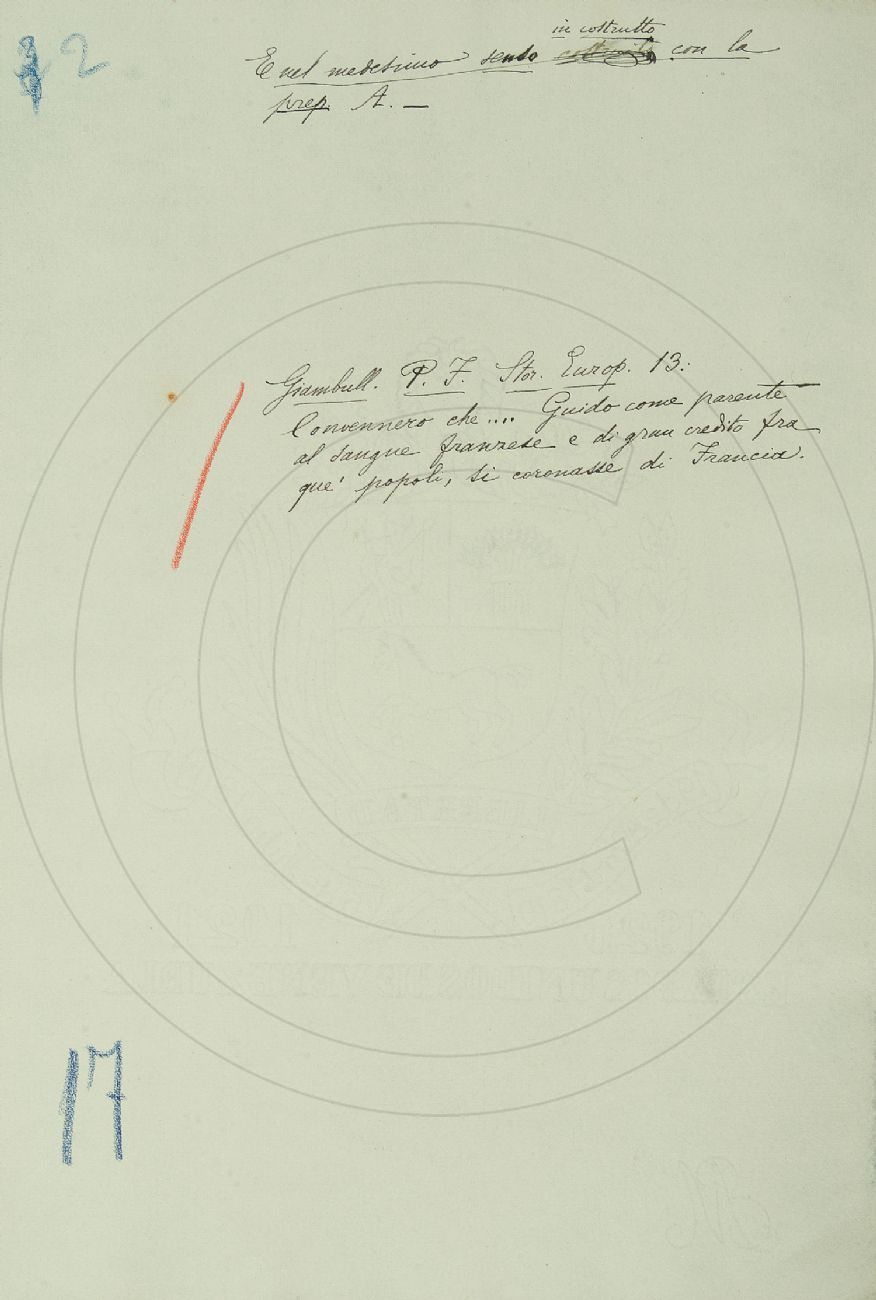 2
in costrutto
E nel medesimo senso con la
prep. A. —
Giambull. P. F. Stor. Europ. 13:
Convennero che.... Guido come parente
al sangue franzese e di gran credito fra
que' popoli, si coronasse di Francia.
17